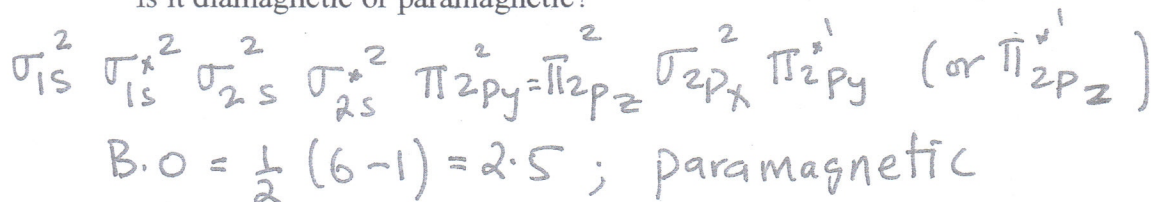 is it diamagnetic or paramagnetic?
σ1s² σ*1s² σ2s² σ*2s² π2py² = π2pz² σ2px² π*2py¹ (or π*2pz¹)
B.O = 1/2 (6-1) = 2.5 ; paramagnetic